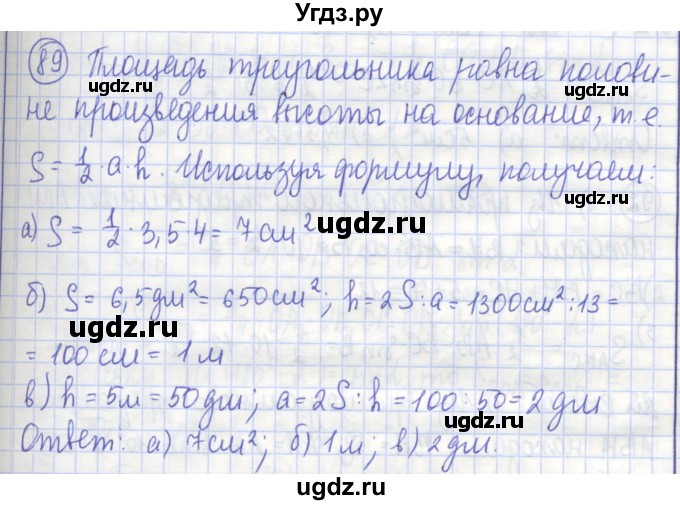 Угдз.ру
89 Площадь треугольника равна полови-
ugdz.ru ugdz.ru
не произведения высоты на основание, т.е.
S = 1/2 · a · h. Используя формулу, получаем:
ugdz.ru
а) S = 1/2 · 3,5 · 4 = 7 см²
ugdz.ru
б) S = 6,5 дм² = 650 см²; h = 2S : a = 1300 см² : 13 =
ugdz.ru ugdz.ru
= 100 см = 1 м
в) h = 5м = 50 дм; a = 2S : h = 100 : 50 = 2 дм
ugdz.ru
Ответ: а) 7 см²; б) 1 м; в) 2 дм.
ugdz.ru
ugdz.ru